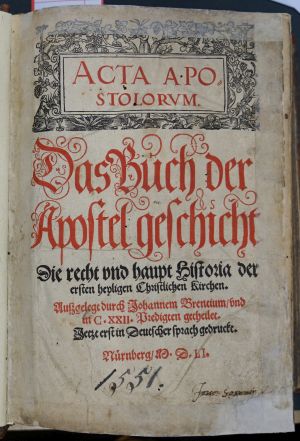 ACTA APO-
STOLORVM.
Das Buch der
Apostel geschicht
Die recht vnd haupt Historia der
ersten heyligen Christlichen Kirchen.
Außgelegt durch Johannem Brentium/vnd
in C.XXII. Predigten getheilet.
Jetzt erst in Deutscher sprach gedruckt.
Nürnberg/M. D. LI.
1551.